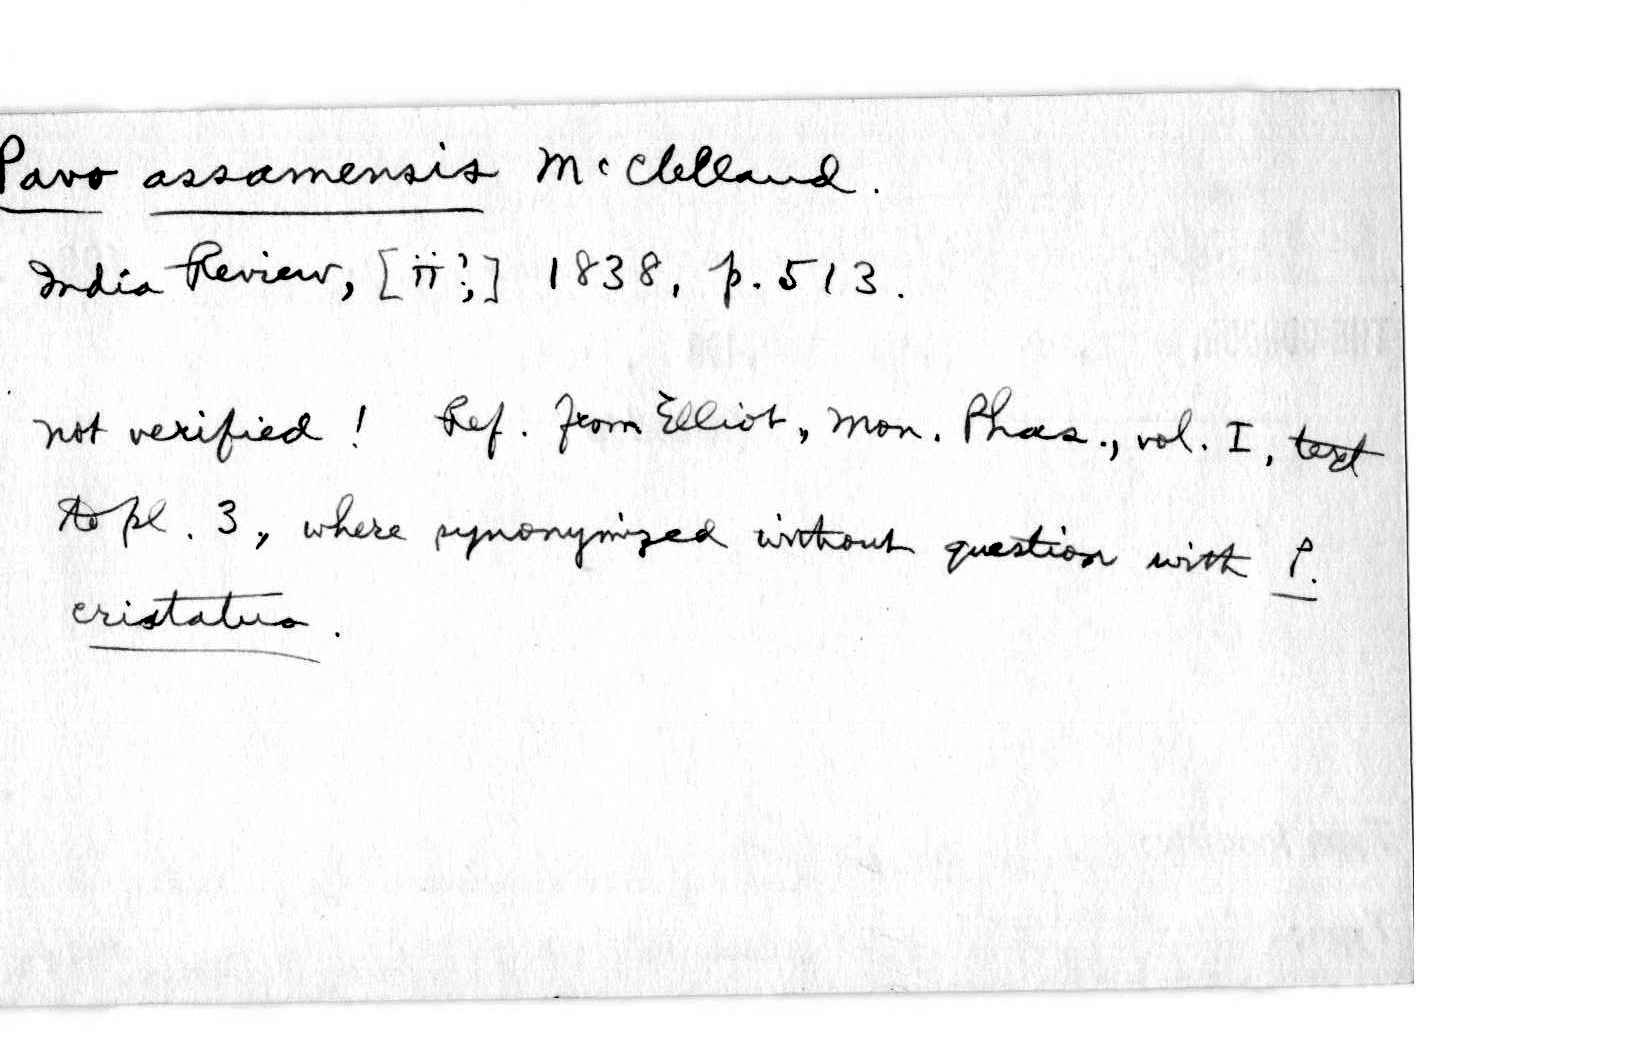 Pavo assamensis McClelland.
India Review, [ii?,] 1838, p. 513.
not verified! Ref. from Elliot, Mon. Phas., vol. I, text
to pl. 3, where synonymized without question with P.
cristatus.